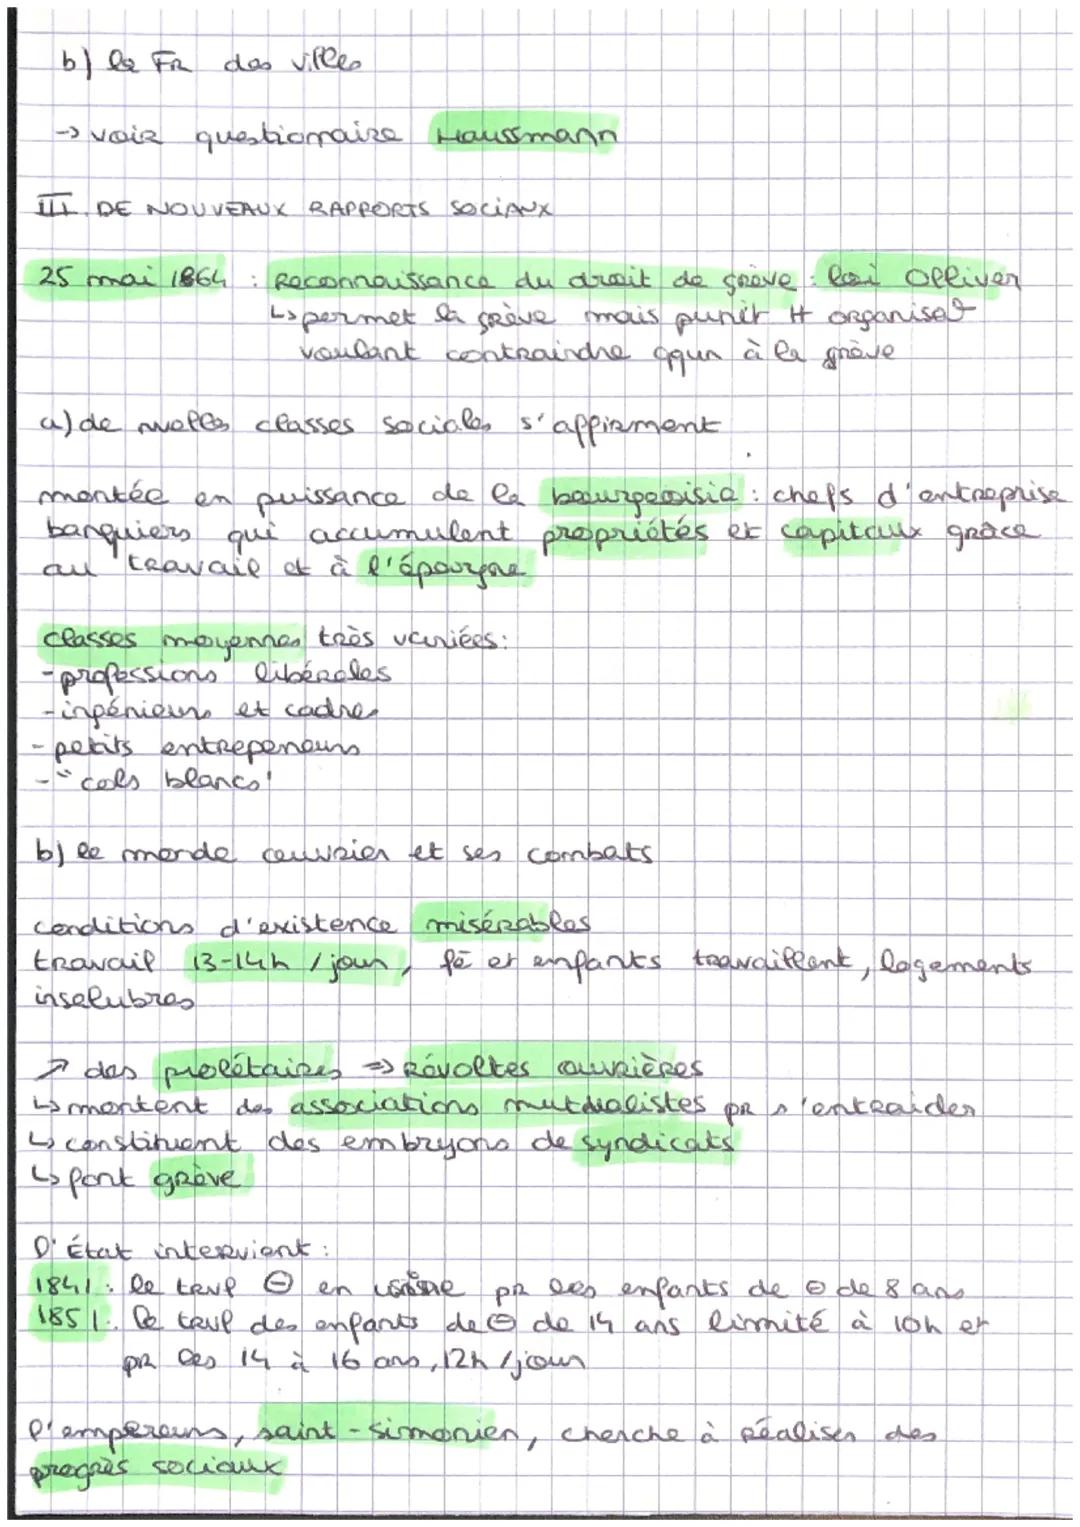 b) la FR des villes
-> voir questionnaire Haussmann
III. DE NOUVEAUX RAPPORTS SOCIAUX
25 mai 1864 : Reconnaissance du droit de grève : loi Olliver
↳ permet la grève mais punit tt organisat°
voulant contraindre qqun à la grève
a) de nvelles classes sociales s'affirment
montée en puissance de la bourgeoisie : chefs d'entreprise
banquiers qui accumulent propriétés et capitaux grâce
au travail et à l'épargne
classes moyennes très variées :
- professions libérales
- ingénieurs et cadres
- petits entrepeneurs
- "cols blancs"
b) le monde ouvrier et ses combats
conditions d'existence misérables
travail 13-14h / jour, fê et enfants travaillent, logements
insalubres
↗ des prolétaires => Révoltes ouvrières
↳ montent des associations mutualistes pr s'entraider
↳ constituent des embryons de syndicats
↳ font grève
l'État intervient :
1841 : le travl ⊖ en usine pr les enfants de ⊖ de 8 ans
1851 : le travl des enfants de ⊖ de 14 ans limité à 10h et
pr les 14 à 16 ans, 12h / jour
l'empereur, saint-simonien, cherche à réaliser des
progrès sociaux